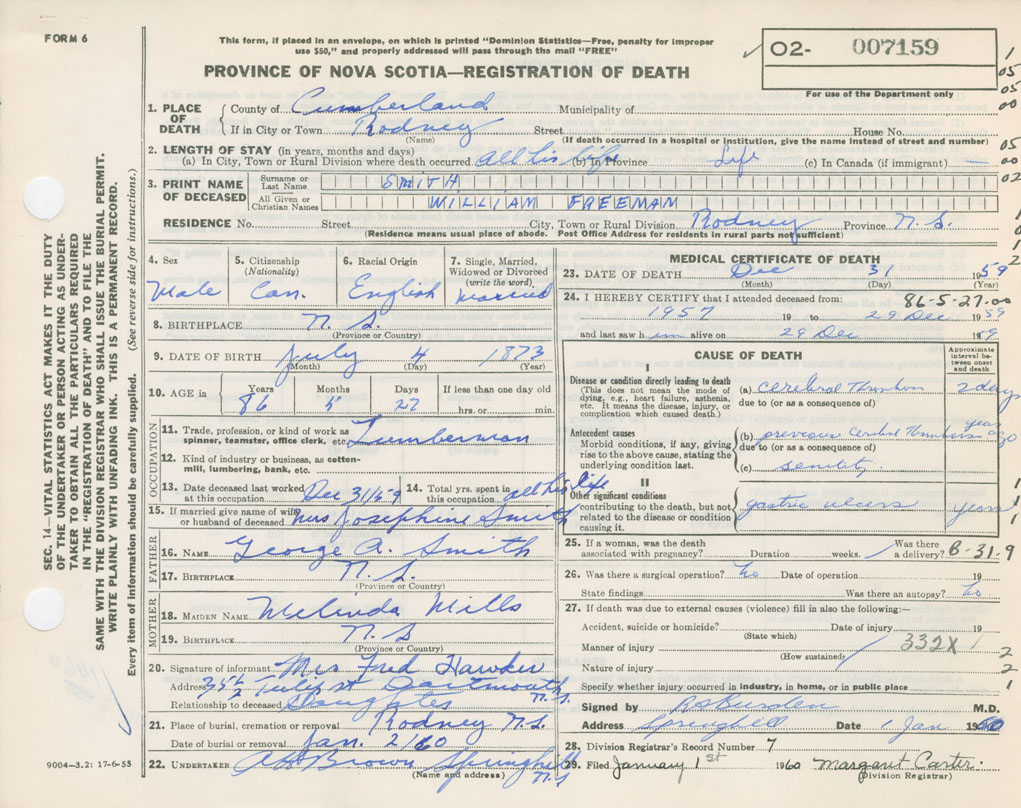 FORM 6
This form, if placed in an envelope, on which is printed "Dominion Statistics—Free, penalty for improper
use $50," and properly addressed will pass through the mail "FREE"
O2- 007159
For use of the Department only
PROVINCE OF NOVA SCOTIA—REGISTRATION OF DEATH
1. PLACE OF DEATH { County of Cumberland Municipality of
If in City or Town Rodney Street House No.
(Name) (If death occurred in a hospital or institution, give the name instead of street and number)
2. LENGTH OF STAY (in years, months and days)
(a) In City, Town or Rural Division where death occurred all his life (b) In Province Life (c) In Canada (if immigrant) —
3. PRINT NAME OF DECEASED { Surname or Last Name SMITH
All Given or Christian Names WILLIAM FREEMAN
RESIDENCE No. Street City, Town or Rural Division Rodney Province N.S.
(Residence means usual place of abode. Post Office Address for residents in rural parts not sufficient)
4. Sex Male
5. Citizenship (Nationality) Can.
6. Racial Origin English
7. Single, Married, Widowed or Divorced (write the word) Married
8. BIRTHPLACE N.S.
(Province or Country)
9. DATE OF BIRTH July 4 1873
(Month) (Day) (Year)
10. AGE in { Years 86 Months 5 Days 27 If less than one day old
hrs. or min.
OCCUPATION
11. Trade, profession, or kind of work as
spinner, teamster, office clerk, etc. Lumberman
12. Kind of industry or business, as cotton-
mill, lumbering, bank, etc.
13. Date deceased last worked
at this occupation Dec 31/59
14. Total yrs. spent in
this occupation all his life
15. If married give name of wife
or husband of deceased Mrs Josephine Smith
FATHER
16. NAME George A. Smith
17. BIRTHPLACE N.S.
(Province or Country)
MOTHER
18. MAIDEN NAME Melinda Mills
19. BIRTHPLACE N.S
(Province or Country)
20. Signature of informant Mrs Fred Hawker
Address 35 1/2 Tulip St Dartmouth N.S.
Relationship to deceased Daughter
21. Place of burial, cremation or removal Rodney N.S.
Date of burial or removal Jan. 2/60
22. UNDERTAKER Brown Springhill N.S
(Name and address)
9004-3.2: 17-6-55
MEDICAL CERTIFICATE OF DEATH
23. DATE OF DEATH Dec 31 1959
(Month) (Day) (Year)
24. I HEREBY CERTIFY that I attended deceased from: 86-5-27.00
1957 19 to 29 Dec 1959
and last saw h im alive on 29 Dec 19 59
CAUSE OF DEATH
Approximate interval between onset and death
I
Disease or condition directly leading to death
(This does not mean the mode of dying, e.g., heart failure, asthenia, etc. It means the disease, injury, or complication which caused death.)
(a) Cerebral Thrombosis 2 days
due to (or as a consequence of)
Antecedent causes
Morbid conditions, if any, giving rise to the above cause, stating the underlying condition last.
(b) previous Cerebral Thrombosis years ago
due to (or as a consequence of)
(c) senility
II
Other significant conditions
contributing to the death, but not related to the disease or condition causing it.
gastric ulcers years
25. If a woman, was the death
associated with pregnancy? Duration weeks. Was there a delivery? B-31-9
26. Was there a surgical operation? No Date of operation 19
State findings Was there an autopsy? No
27. If death was due to external causes (violence) fill in also the following:—
Accident, suicide or homicide? Date of injury 19
(State which)
Manner of injury 332X
(How sustained)
Nature of injury
Specify whether injury occurred in industry, in home, or in public place
Signed by Burden M.D.
Address Springhill Date 1 Jan 1960
28. Division Registrar's Record Number 7
29. Filed January 1st 1960 Margaret Carter
(Division Registrar)
1
05
05
00
05
00
02
1
0
1
2
1
1
1
2
2
1
SEC. 14—VITAL STATISTICS ACT MAKES IT THE DUTY
OF THE UNDERTAKER OR PERSON ACTING AS UNDER-
TAKER TO OBTAIN ALL THE PARTICULARS REQUIRED
IN THE "REGISTRATION OF DEATH" AND TO FILE THE
SAME WITH THE DIVISION REGISTRAR WHO SHALL ISSUE THE BURIAL PERMIT.
WRITE PLAINLY WITH UNFADING INK. THIS IS A PERMANENT RECORD.
Every item of information should be carefully supplied. (See reverse side for instructions.)